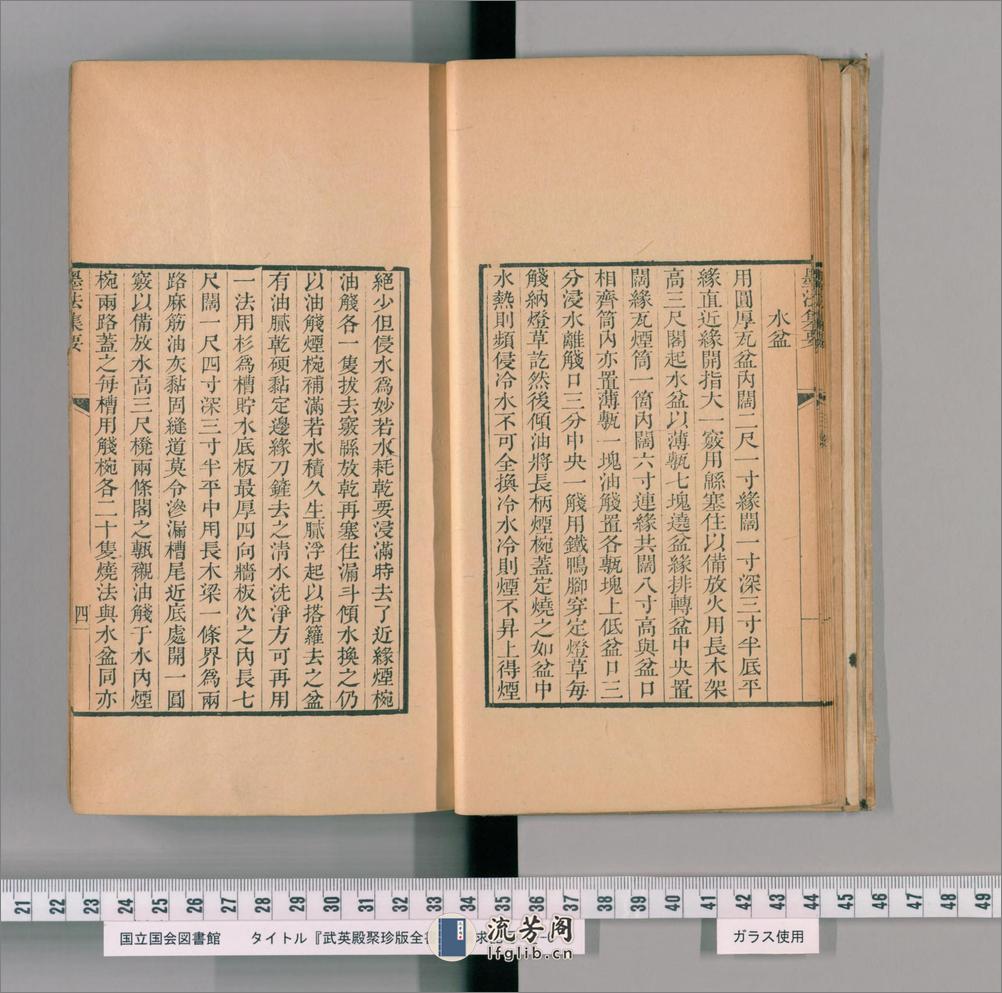 墨法集要
水盆
用圓厚瓦盆內闊二尺一寸緣闊一寸深三寸半底平
緣直近緣開指大一竅用緜塞住以備放火用長木架
高三尺閣起水盆以薄甎七塊遶盆緣排轉盆中央置
闊緣瓦煙筒一箇內闊六寸連緣共闊八寸高與盆口
相齊筒內亦置薄甎一塊油觮置各甎塊上低盆口三
分浸水離觮口三分中央一觮用鐵鴨腳穿定燈草每
觮納燈草訖然後傾油將長柄煙椀蓋定燒之如盆中
水熱則頻侵冷水不可全換冷水冷則煙不昇上得煙
絕少但侵水為妙若水耗乾要浸滿時去了近緣煙椀
油觮各一隻拔去竅緜放乾再塞住漏斗傾水換之仍
以油觮煙椀補滿若水積久生膩浮起以搭籮去之盆
有油膩乾硬黏定邊緣刀鏟去之清水洗淨方可再用
一法用杉為槽貯水底板最厚四向牆板次之內長七
尺闊一尺四寸深三寸半平中用長木梁一條界為兩
路麻筋油灰黏固縫道莫令滲漏槽尾近底處開一圓
竅以備放水高三尺櫈兩條閣之甎襯油觮于水內煙
椀兩路蓋之每槽用觮椀各二十隻燒法與水盆同亦
墨法集要
四
21 22 23 24 25 26 27 28 29 30 31 32 33 34 35 36 37 38 39 40 41 42 43 44 45 46 47 48 49
国立国会図書館 タイトル『武英殿聚珍版全
ガラス使用
流芳阁
lfglib.com